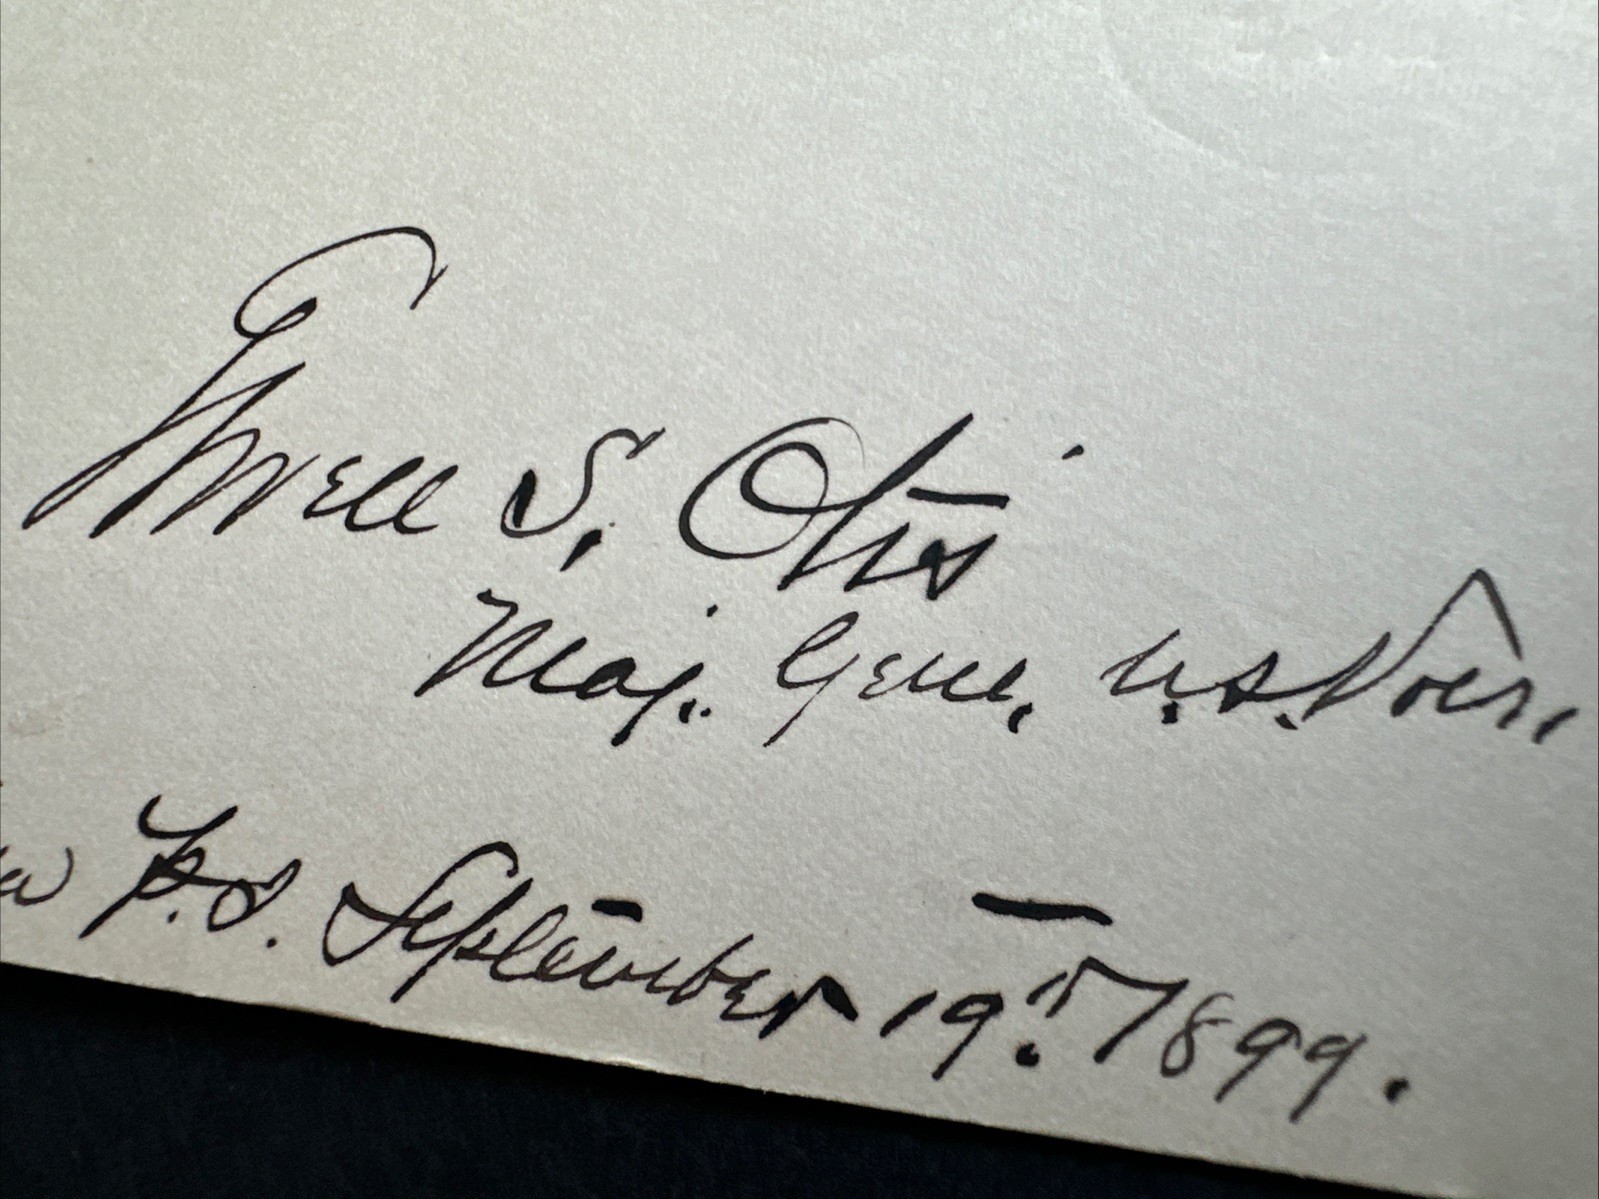 Elwell S. Otis
Maj. Genl. U.S. Vols.
a P.I. September 19th 1899.